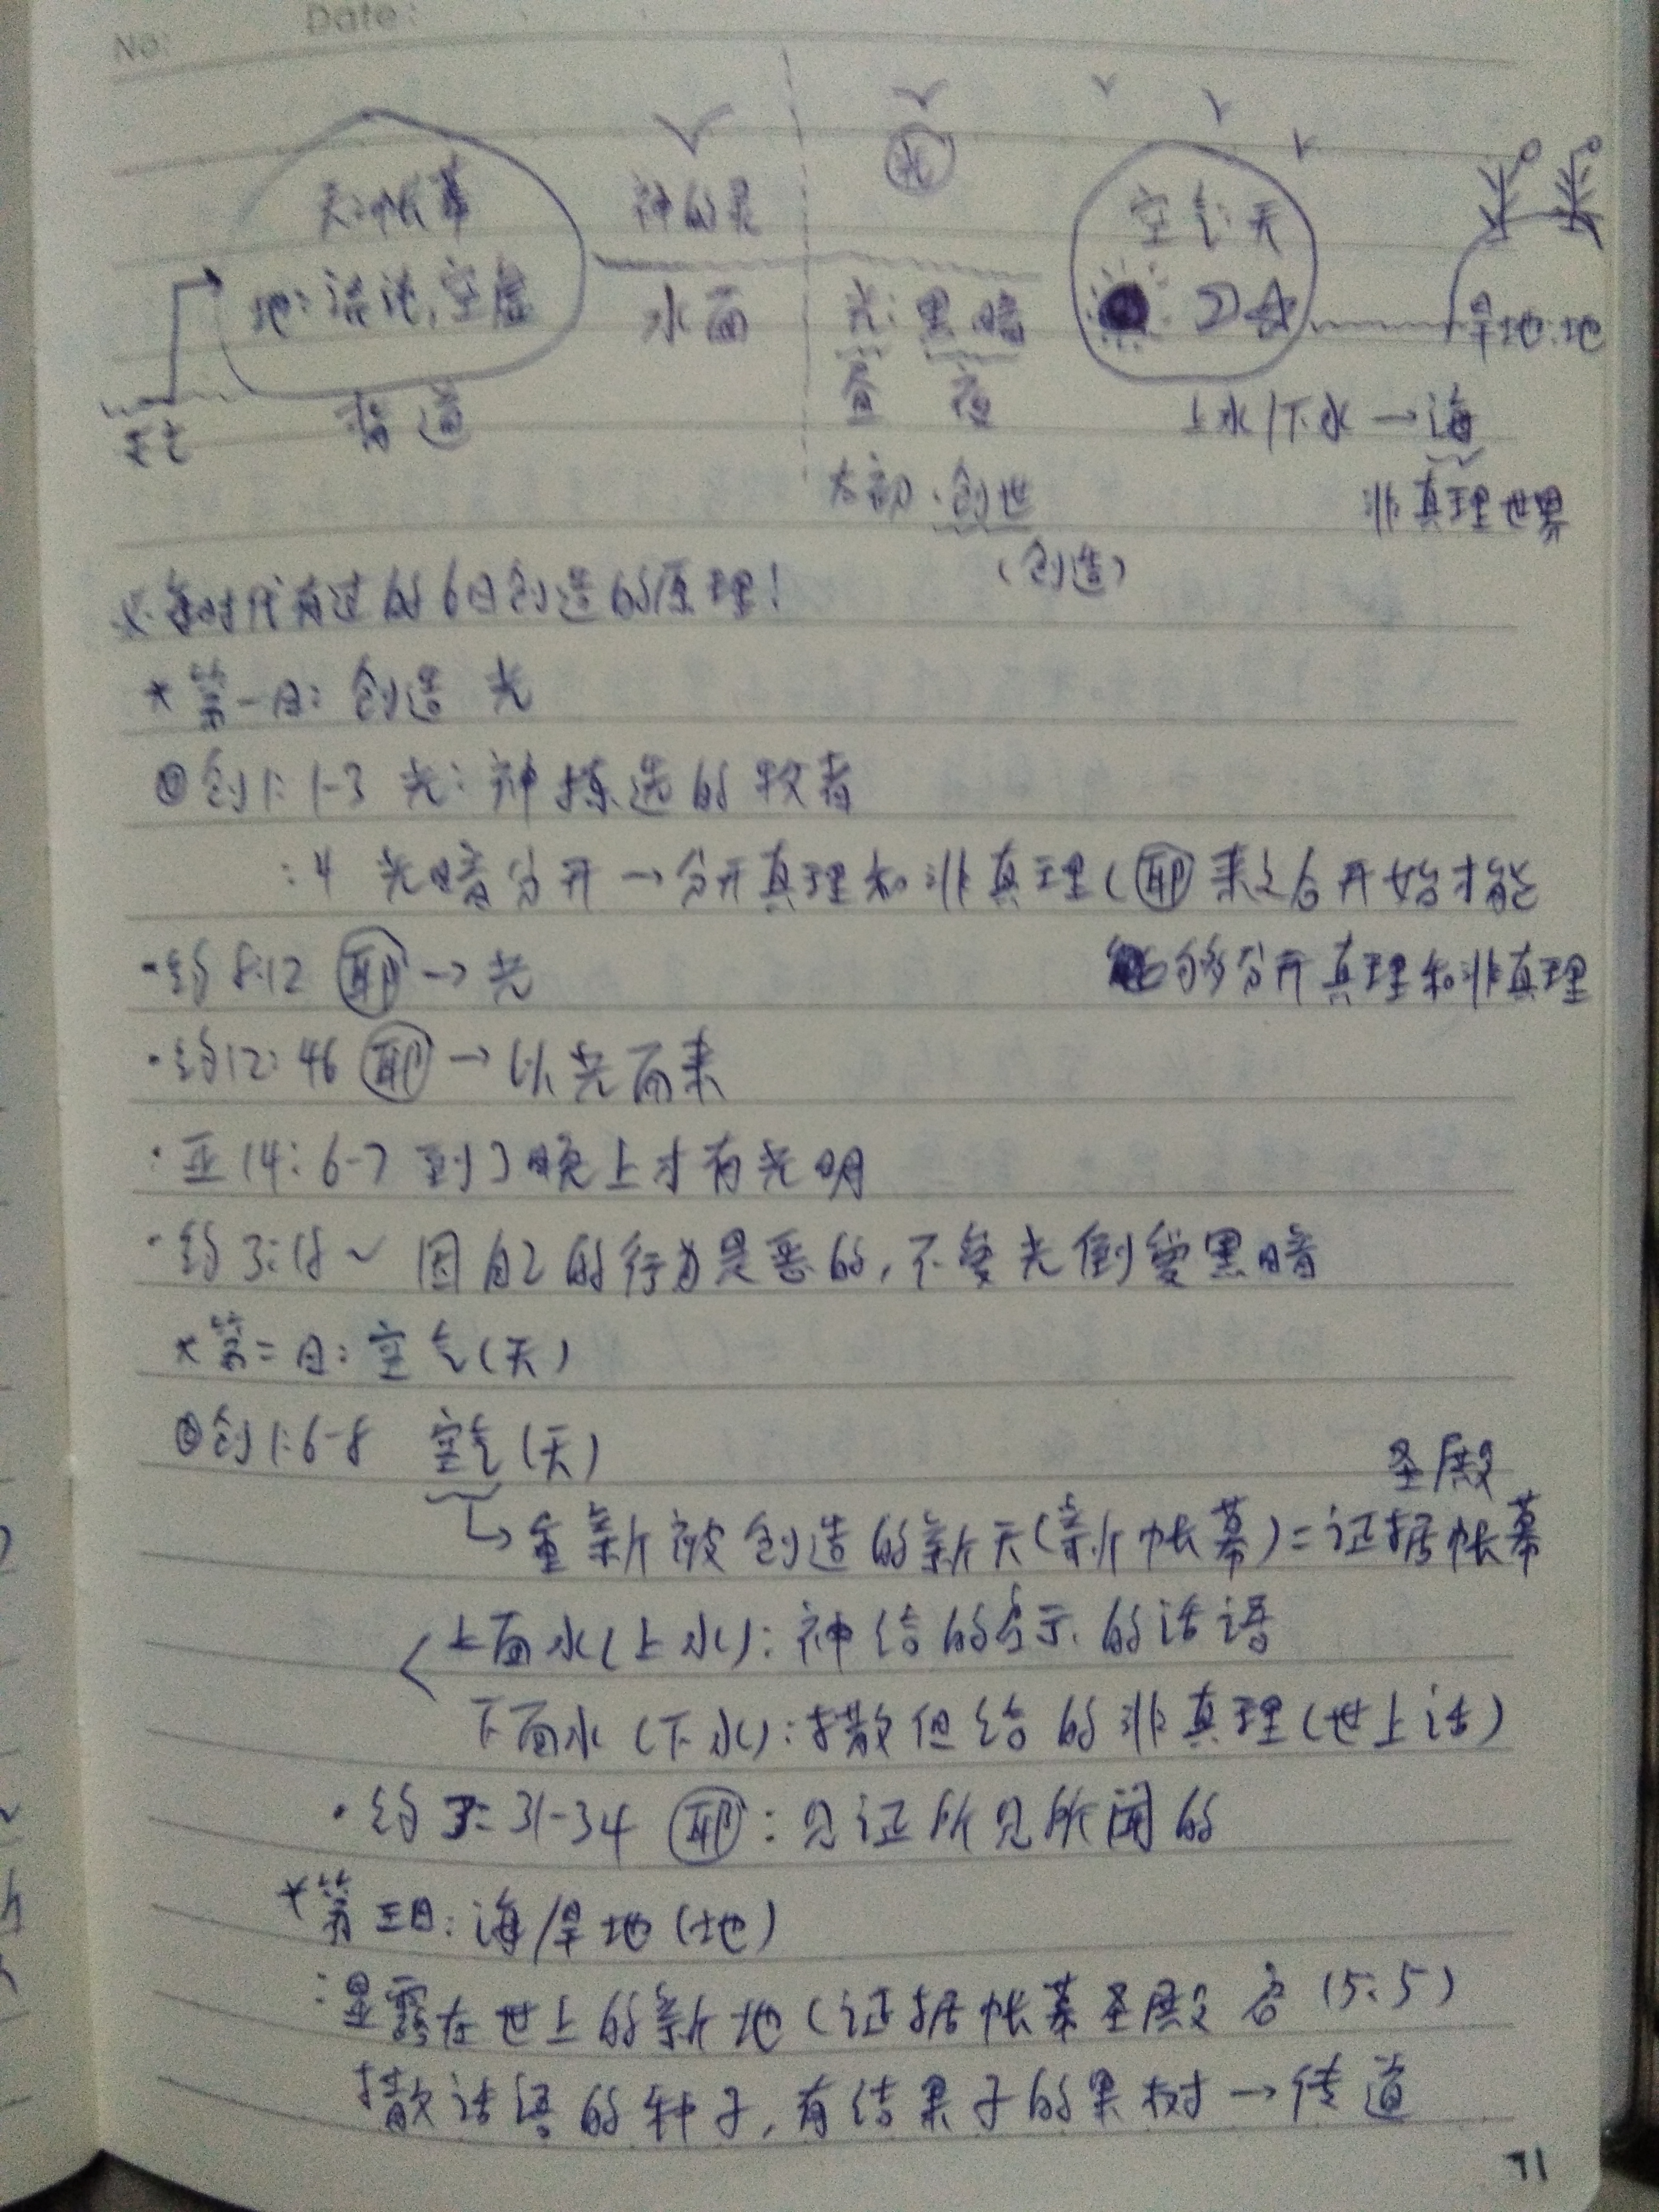 No: Date:
天:帐幕 神的灵 光 空气:天
地:混沌,空虚 水面 光: 黑暗 旱地:地
昼 夜 上水/下水→海
背道
太初·创世 非真理世界
(创造)
每时代有过的6日创造的原理!
*第一日: 创造 光
创1:1-3 光: 神拣选的牧者
:4 光暗分开→分开真理和非真理(耶 来之后开始才能
·约8:12 耶→光 能够分开真理和非真理
·约12:46 耶→以光而来
·亚14:6-7 到了晚上才有光明
·约3:18~ 因自己的行为是恶的,不爱光倒爱黑暗
*第二日: 空气(天)
创1:6-8 空气(天) 圣殿
↳重新被创造的新天(新帐幕)=证据帐幕
<上面水(上水): 神给的启示的话语
下面水(下水):撒但给的非真理(世上话)
·约3:31-34 耶: 见证所见所闻的
*第三日: 海/旱地(地)
:显露在世上的新地(证据帐幕圣殿 启15:5)
撒话语的种子,有结果子的果树→传道
71